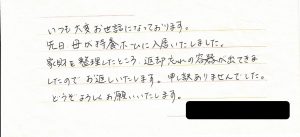 いつも大変お世話になっております。
先日 母が特養ホームに入居いたしました。
家財を整理したところ、返却忘れの容器が出てきま
したので お返しいたします。申し訳ありませんでした。
どうぞよろしくお願いいたします。